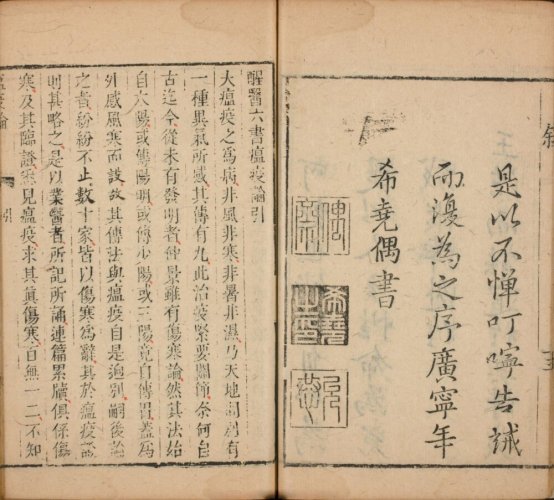 是以不憚叮嚀告誡
而復為之序廣寧年
希堯偶書
醒醫六書瘟疫論引
夫瘟疫之為病非風非寒非暑非濕乃天地間別有
一種異氣所感其傳有九此治疫緊要關節奈何自
古迄今從未有發明者仲景雖有傷寒論然其法始
自太陽或傳陽明或傳少陽或三陽竟自傳胃蓋為
外感風寒而設故其傳法與瘟疫自是迥別嗣後論
之者紛紛不止數十家皆以傷寒為辭其於瘟疫證
則甚略之是以業醫者所記所誦連篇累牘俱係傷
寒及其臨證悉見瘟疫求其真傷寒百無一二不知
瘟疫論
引